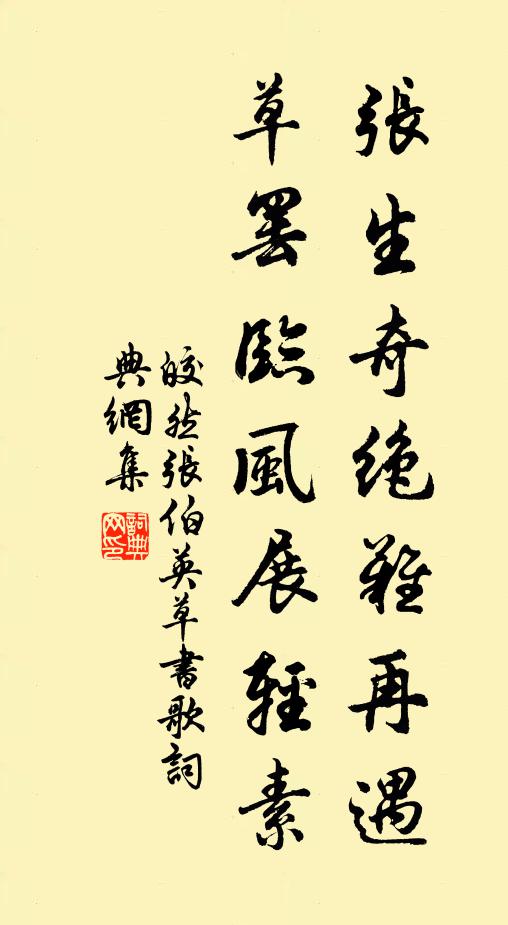 張生奇絕難再遇
草罷臨風展輕素
皎然張伯英草書歌詞
典網集
詞典網印